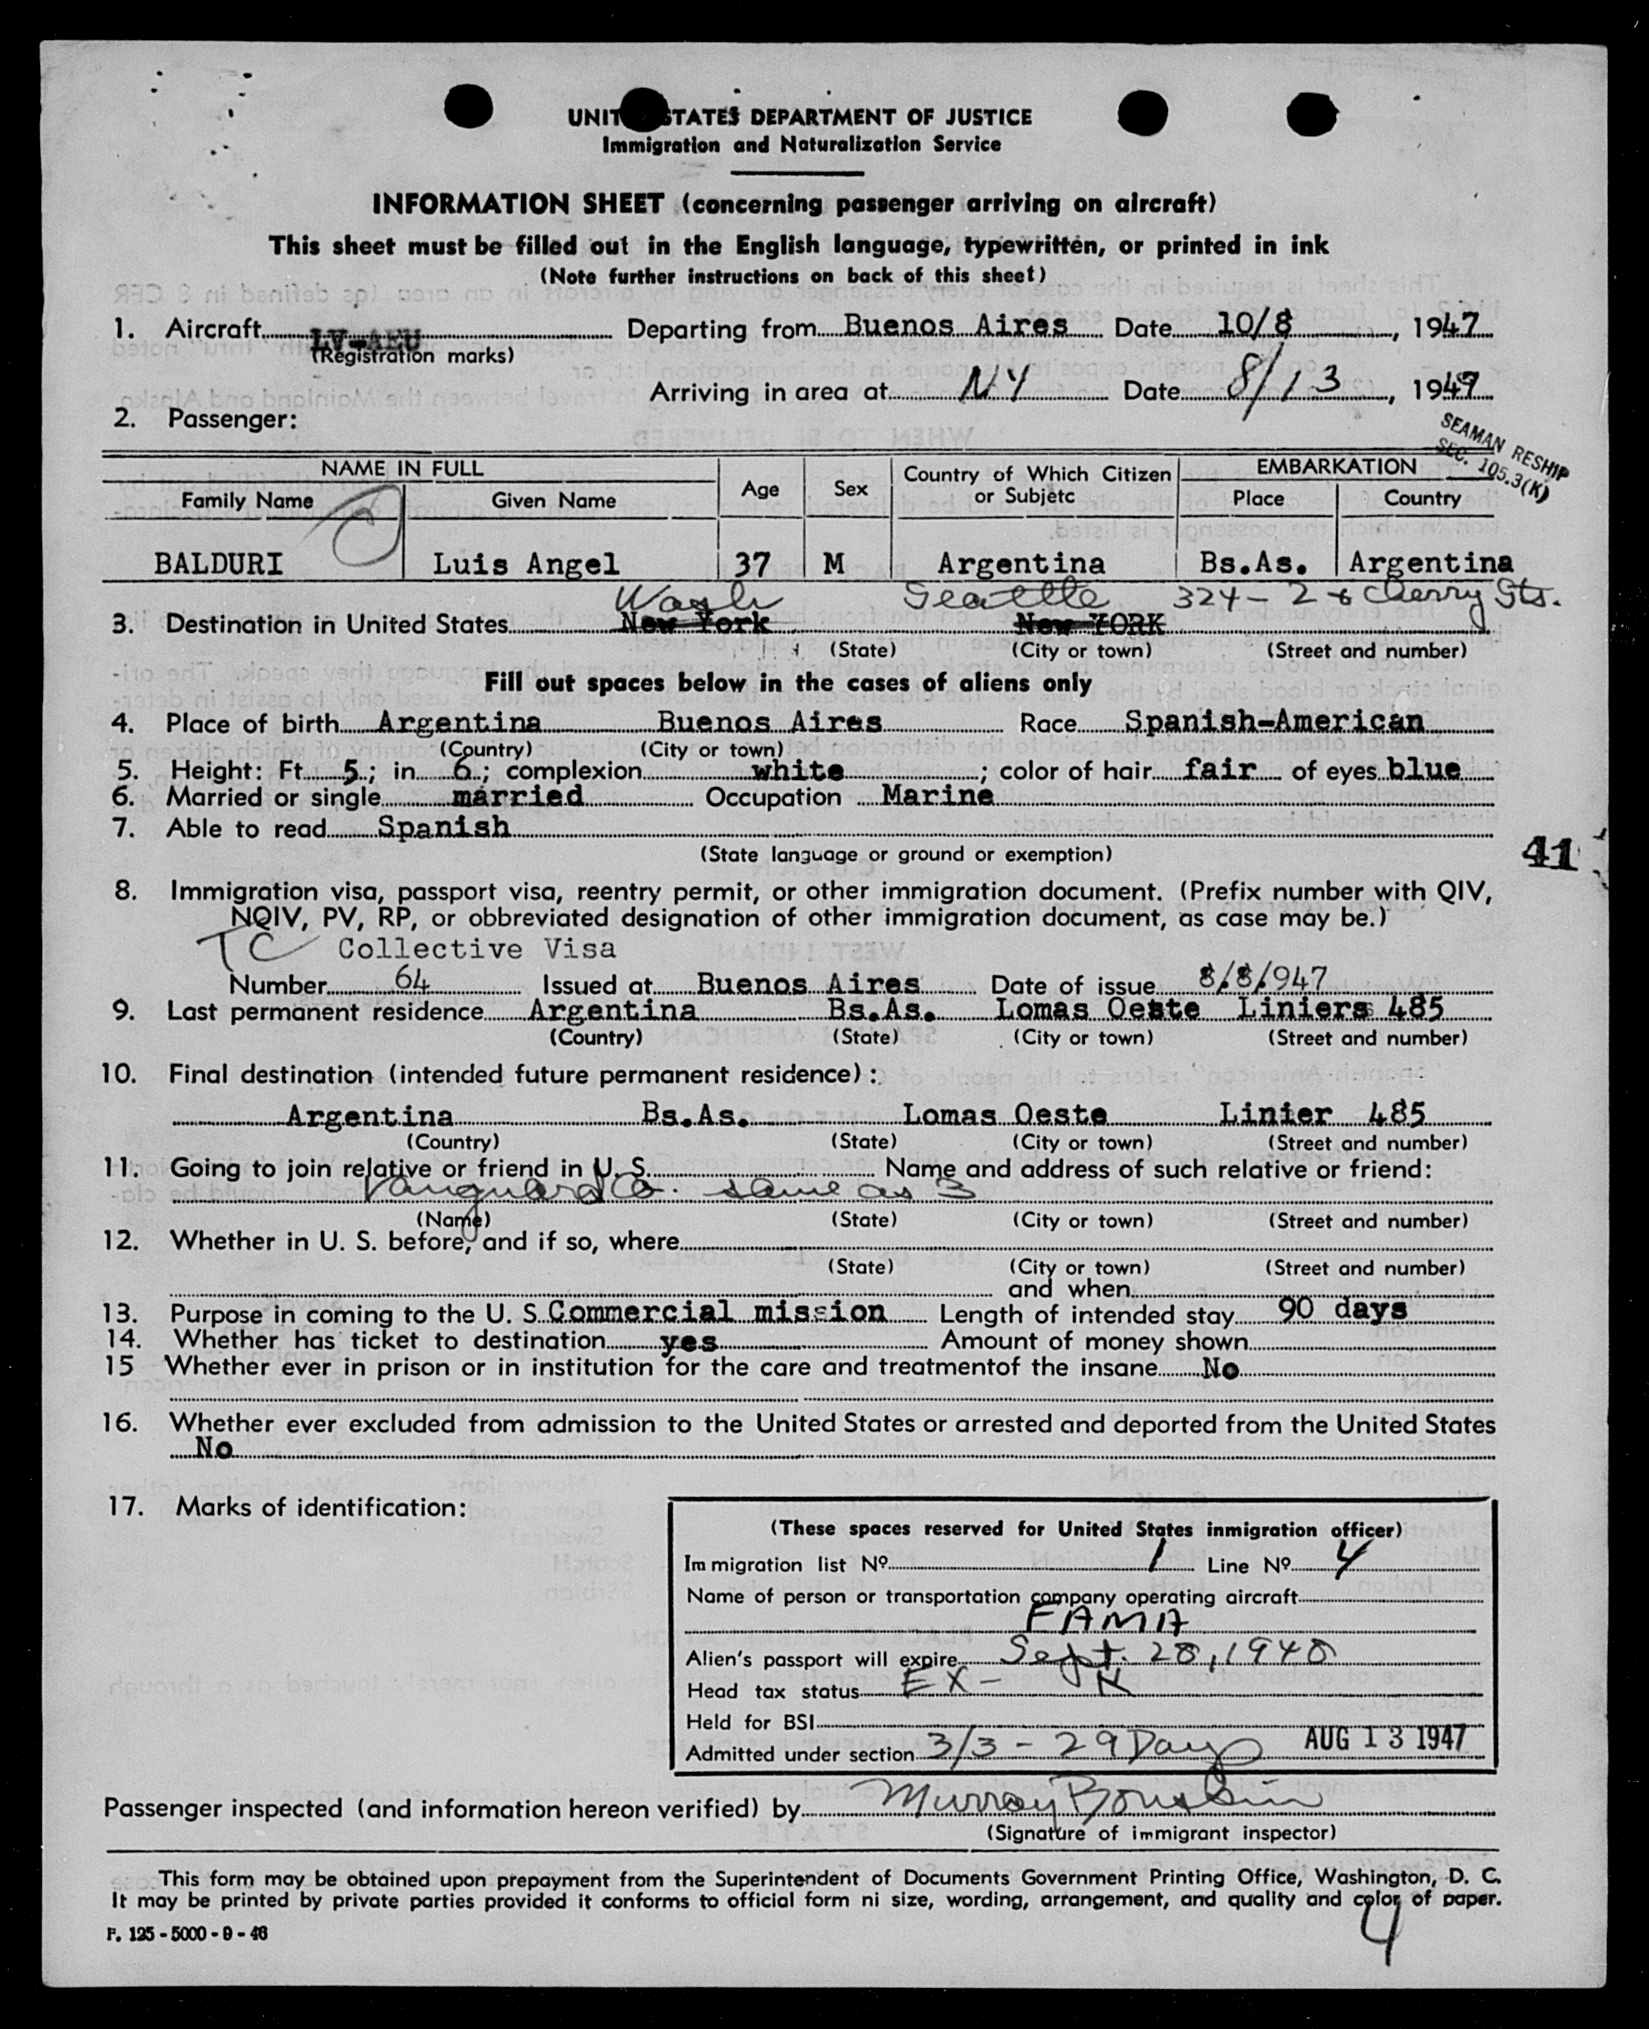 UNIT STATES DEPARTMENT OF JUSTICE
Immigration and Naturalization Service
INFORMATION SHEET (concerning passenger arriving on aircraft)
This sheet must be filled out in the English language, typewritten, or printed in ink
(Note further instructions on back of this sheet)
1. Aircraft LV-AEU Departing from Buenos Aires Date 10/8, 1947
(Registration marks)
Arriving in area at NY Date 8/13, 1947
2. Passenger:
SEAMAN RESHIP
SEC. 105.3(K)
NAME IN FULL Age Sex Country of Which Citizen or Subjetc EMBARKATION
Family Name Given Name Place Country
BALDURI Luis Angel 37 M Argentina Bs.As. Argentina
Wash Seattle 324 - 2 & Cherry Sts.
3. Destination in United States New York New YORK
(State) (City or town) (Street and number)
Fill out spaces below in the cases of aliens only
4. Place of birth Argentina Buenos Aires Race Spanish-American
(Country) (City or town)
5. Height: Ft. 5.; in. 6.; complexion white; color of hair fair of eyes blue
6. Married or single married Occupation Marine
7. Able to read Spanish
(State language or ground or exemption)
41
8. Immigration visa, passport visa, reentry permit, or other immigration document. (Prefix number with QIV,
NQIV, PV, RP, or obbreviated designation of other immigration document, as case may be.)
TC Collective Visa
Number 64 Issued at Buenos Aires Date of issue 8/8/947
9. Last permanent residence Argentina Bs.As. Lomas Oeste Liniers 485
(Country) (State) (City or town) (Street and number)
10. Final destination (intended future permanent residence):
Argentina Bs.As. Lomas Oeste Linier 485
(Country) (State) (City or town) (Street and number)
11. Going to join relative or friend in U. S. Name and address of such relative or friend:
Vanguard Co. same as 3
(Name) (State) (City or town) (Street and number)
12. Whether in U. S. before, and if so, where
(State) (City or town) (Street and number)
and when
13. Purpose in coming to the U. S. Commercial mission Length of intended stay 90 days
14. Whether has ticket to destination yes Amount of money shown
15 Whether ever in prison or in institution for the care and treatmentof the insane No
16. Whether ever excluded from admission to the United States or arrested and deported from the United States
No
17. Marks of identification:
(These spaces reserved for United States inmigration officer)
Immigration list Nº 1 Line Nº 4
Name of person or transportation company operating aircraft
FAMA
Alien's passport will expire Sept. 28, 1948
Head tax status EX - K
Held for BSI
Admitted under section 3/3 - 29 Days AUG 13 1947
Passenger inspected (and information hereon verified) by Murray
(Signature of immigrant inspector)
This form may be obtained upon prepayment from the Superintendent of Documents Government Printing Office, Washington, D. C.
It may be printed by private parties provided it conforms to official form ni size, wording, arrangement, and quality and color of paper.
F. 125 - 5000 - 9 - 46
4